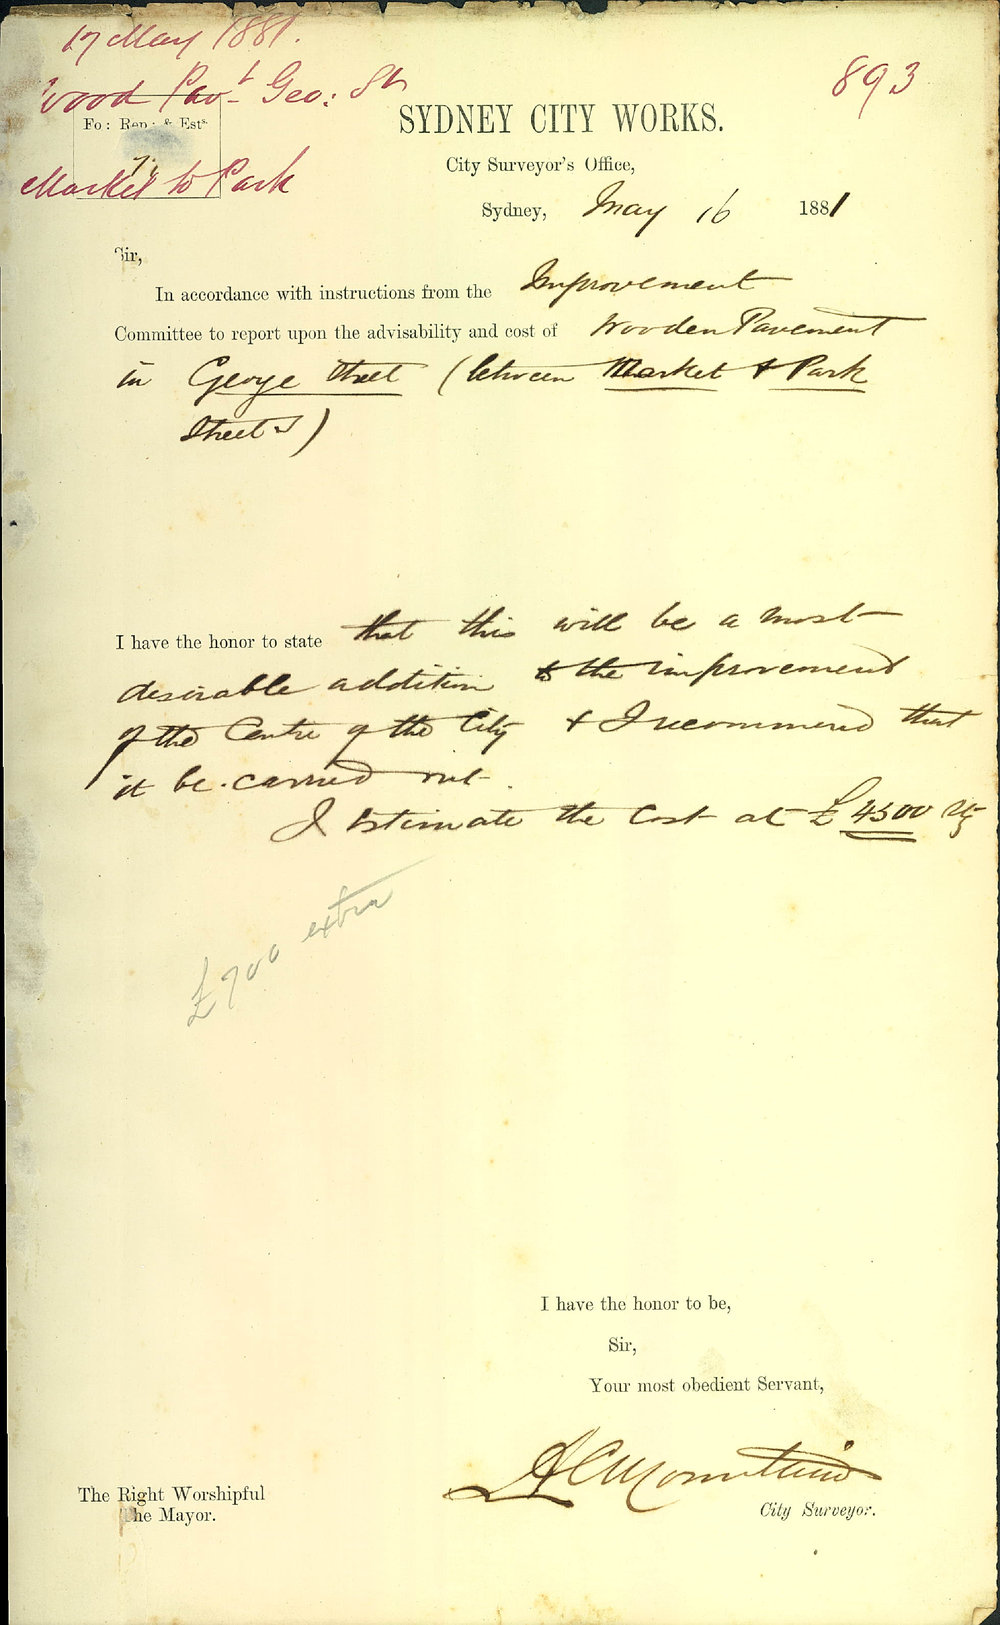 17 May 1881.
893
Wood Pavt Geo: St
Fo: Rep: & Ests
Market to Park
SYDNEY CITY WORKS.
City Surveyor's Office,
Sydney, May 16 1881
Sir,
In accordance with instructions from the Improvement
Committee to report upon the advisability and cost of Wooden Pavement
in George Street (between Market & Park
Streets)
I have the honor to state that this will be a most
desirable addition to the improvement
of the Centre of the City & I recommend that
it be carried out.
I Estimate the Cost at £4500
£700 extra
I have the honor to be,
Sir,
Your most obedient Servant,
A C Mountain
City Surveyor.
The Right Worshipful
The Mayor.